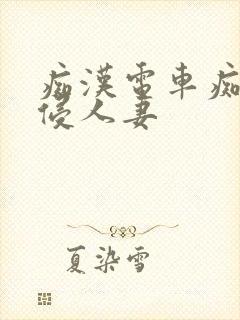 痴漢電車痴
侵人妻
夏染雪